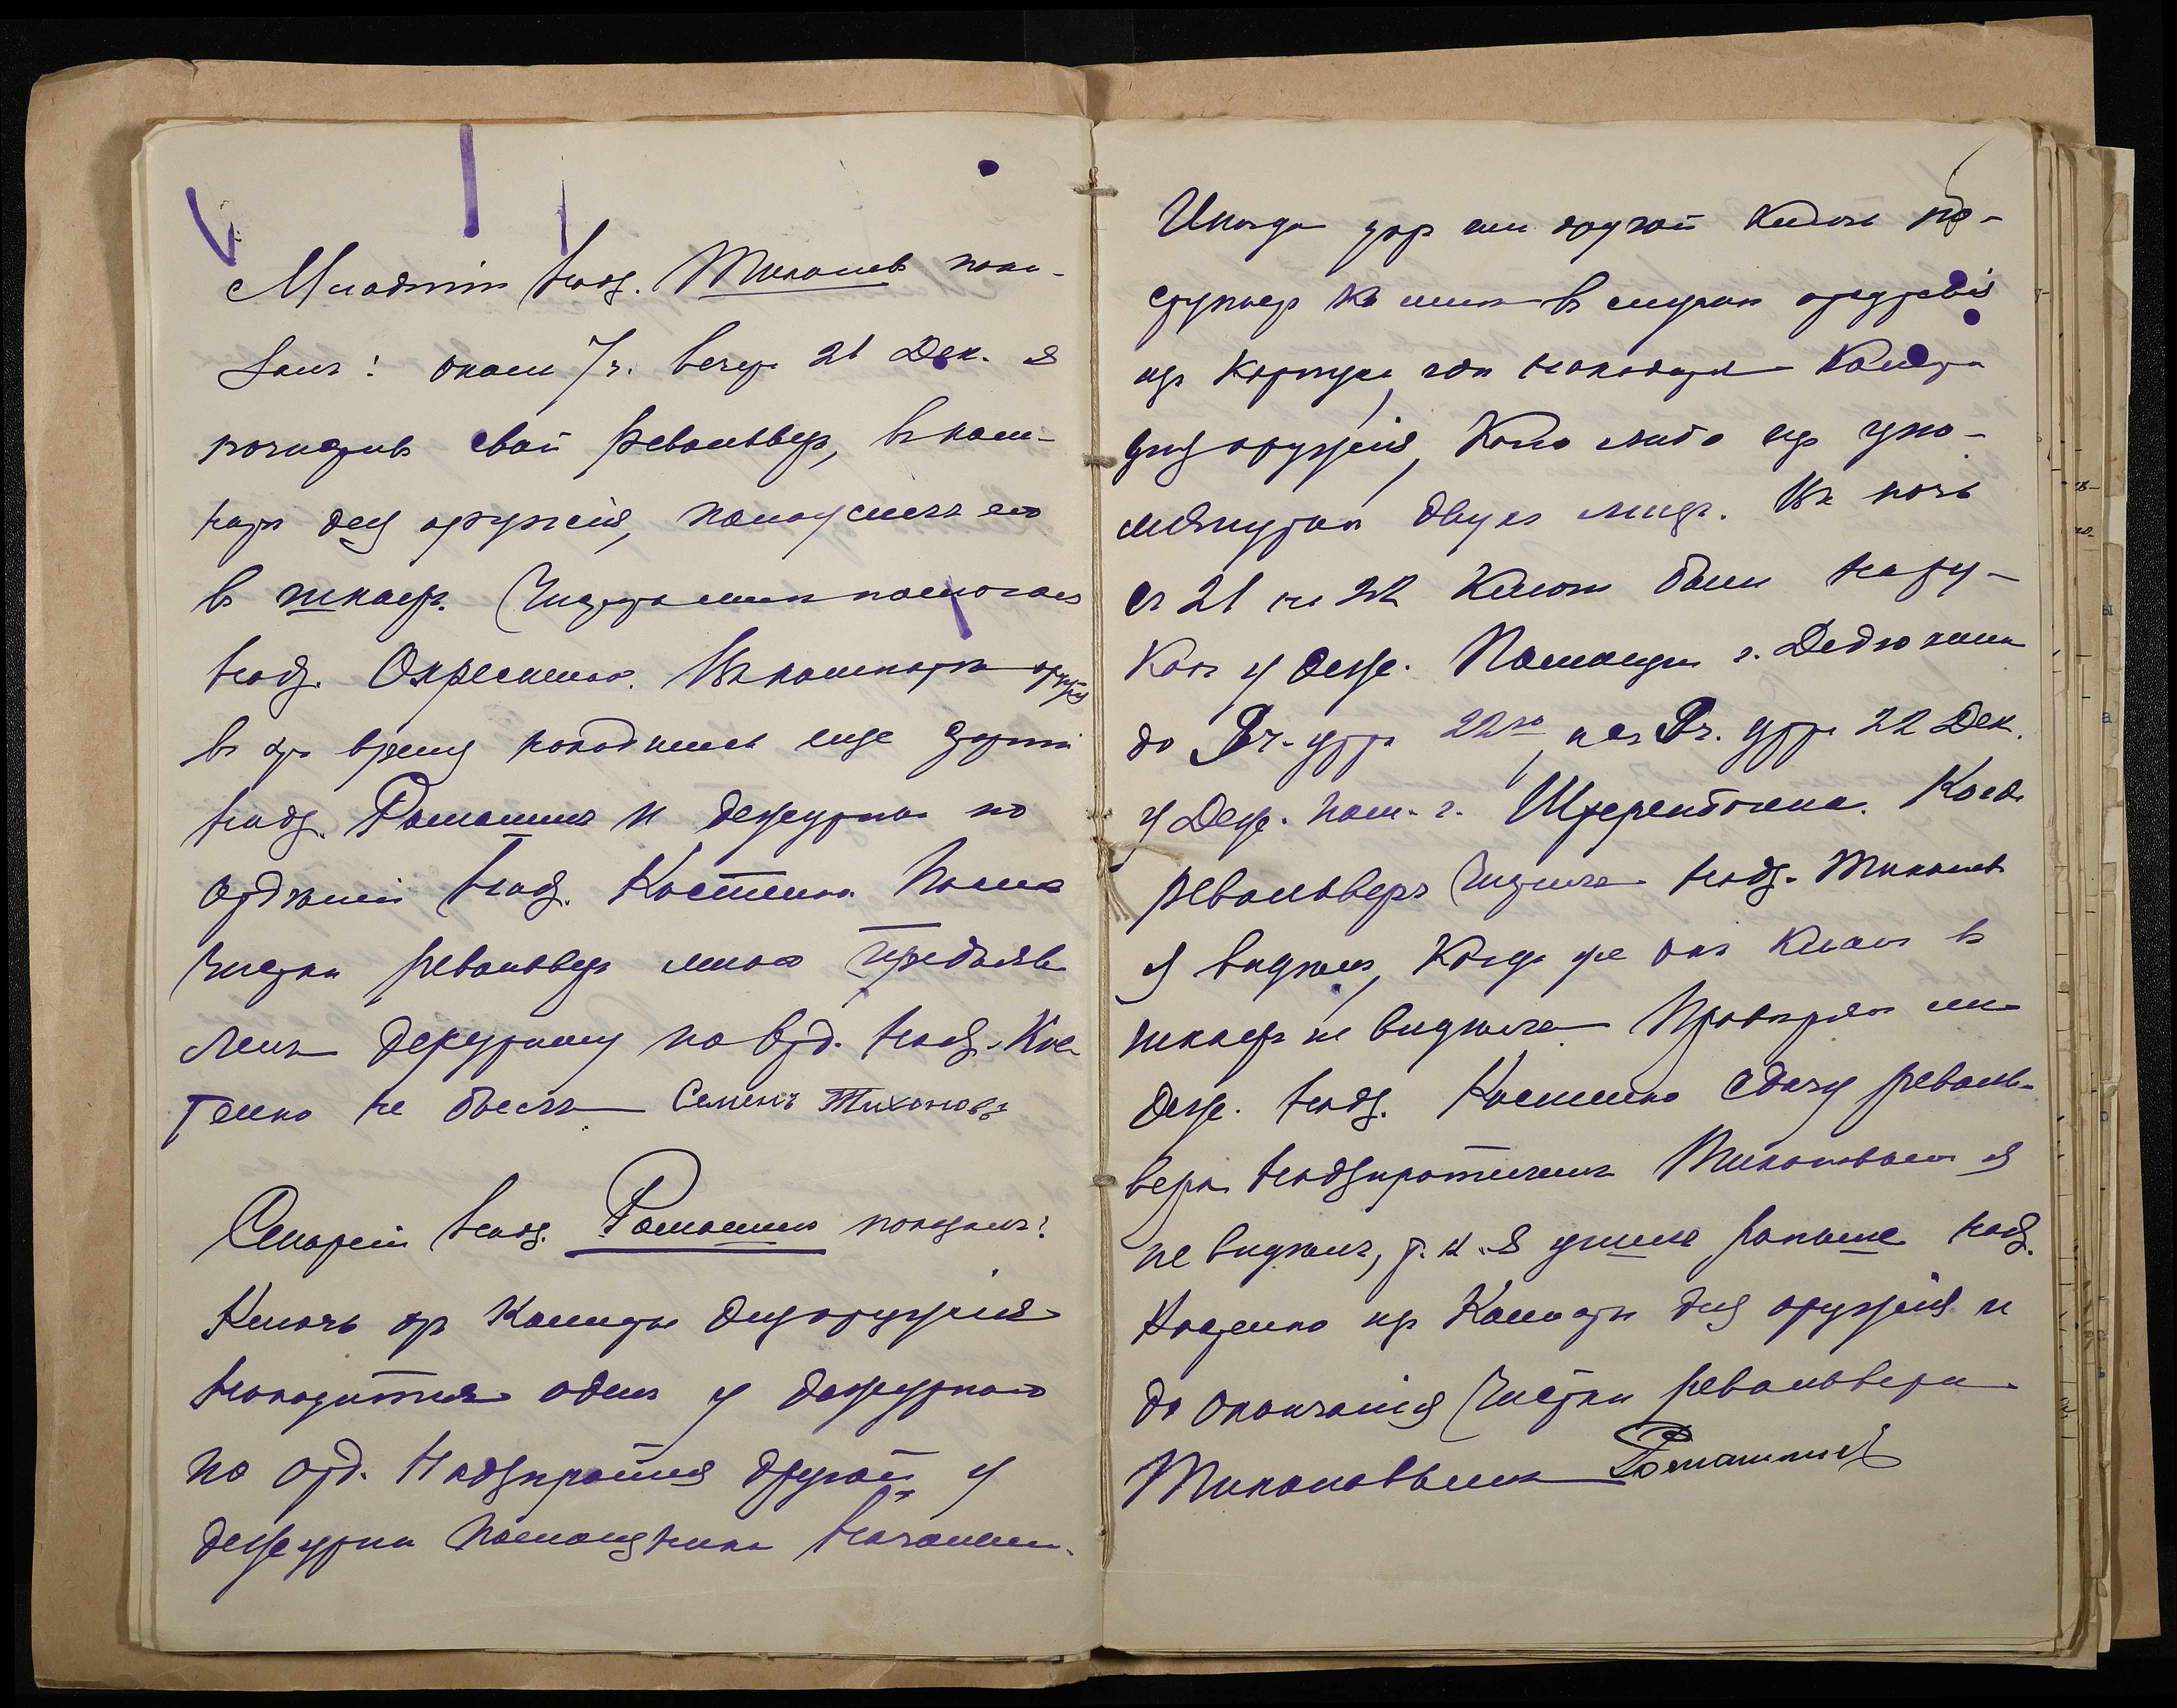 Младшій надз. Тихоновъ пока-
залъ: около 7 ч. вечера 21 Дек. я
почистивъ свой револьверъ, въ ком-
натѣ для оружія, положилъ его
въ шкафъ. Чистить мнѣ помогалъ
надз. Въ комнатѣ оружія
въ это время находились еще
надз. Ромашинъ и дежурный по
отдѣленій надз. Костенко. Послѣ
чистки револьверъ мною предъяв-
ленъ дежурному по отд. надз. Кос-
тенко не былъ Семенъ Тихоновъ

Старшій надз. Ромашинъ показалъ:
Ключъ отъ комнаты для оружія
находится одинъ у дежурнаго
по отд. надзирателя другой у
дежурн. помощника начальн.

Иногда тотъ или другой ключъ по-
ступаетъ ко мнѣ въ случаѣ отсутствія
изъ корпуса, гдѣ находится комната
для оружія, кого либо изъ упо-
мянутыхъ двухъ лицъ. Въ ночь
съ 21 на 22 ключи были
у деж. Помощн. г. Дедюхина
до 8 ч. утра 22го, и съ 8 ч. утра 22 Дек.
у Деж. пом. г. Когда
револьверъ чистилъ надз. Тихоновъ
я видѣлъ, когда же онъ клалъ въ
шкафъ не видѣлъ. Провѣрялъ ли
деж. надз. Костенко сдачу револь-
вера надзирателемъ Тихоновымъ я
не видѣлъ, т. к. я ушелъ раньше надз.
Костенко изъ комнаты для оружія и
до окончанія чистки револьвера
Тихоновымъ Ромашинъ